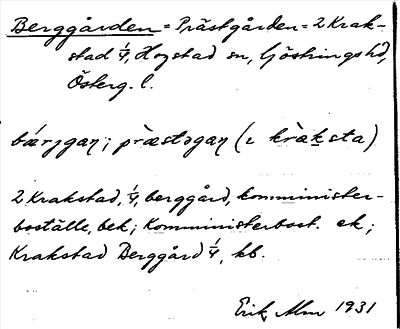 Berggården = Prästgården = 2 Krak-
stad 1/4, Hogstad sn, Göstrings hd,
Österg. l.
bærjgan; præstəgan (ɩ kràksta)
2 Krakstad, 1/4, berggård, komminister-
boställe, bek; Komministerbost. ek;
Krakstad Berggård 1/4, kb.
Erik Alm 1931